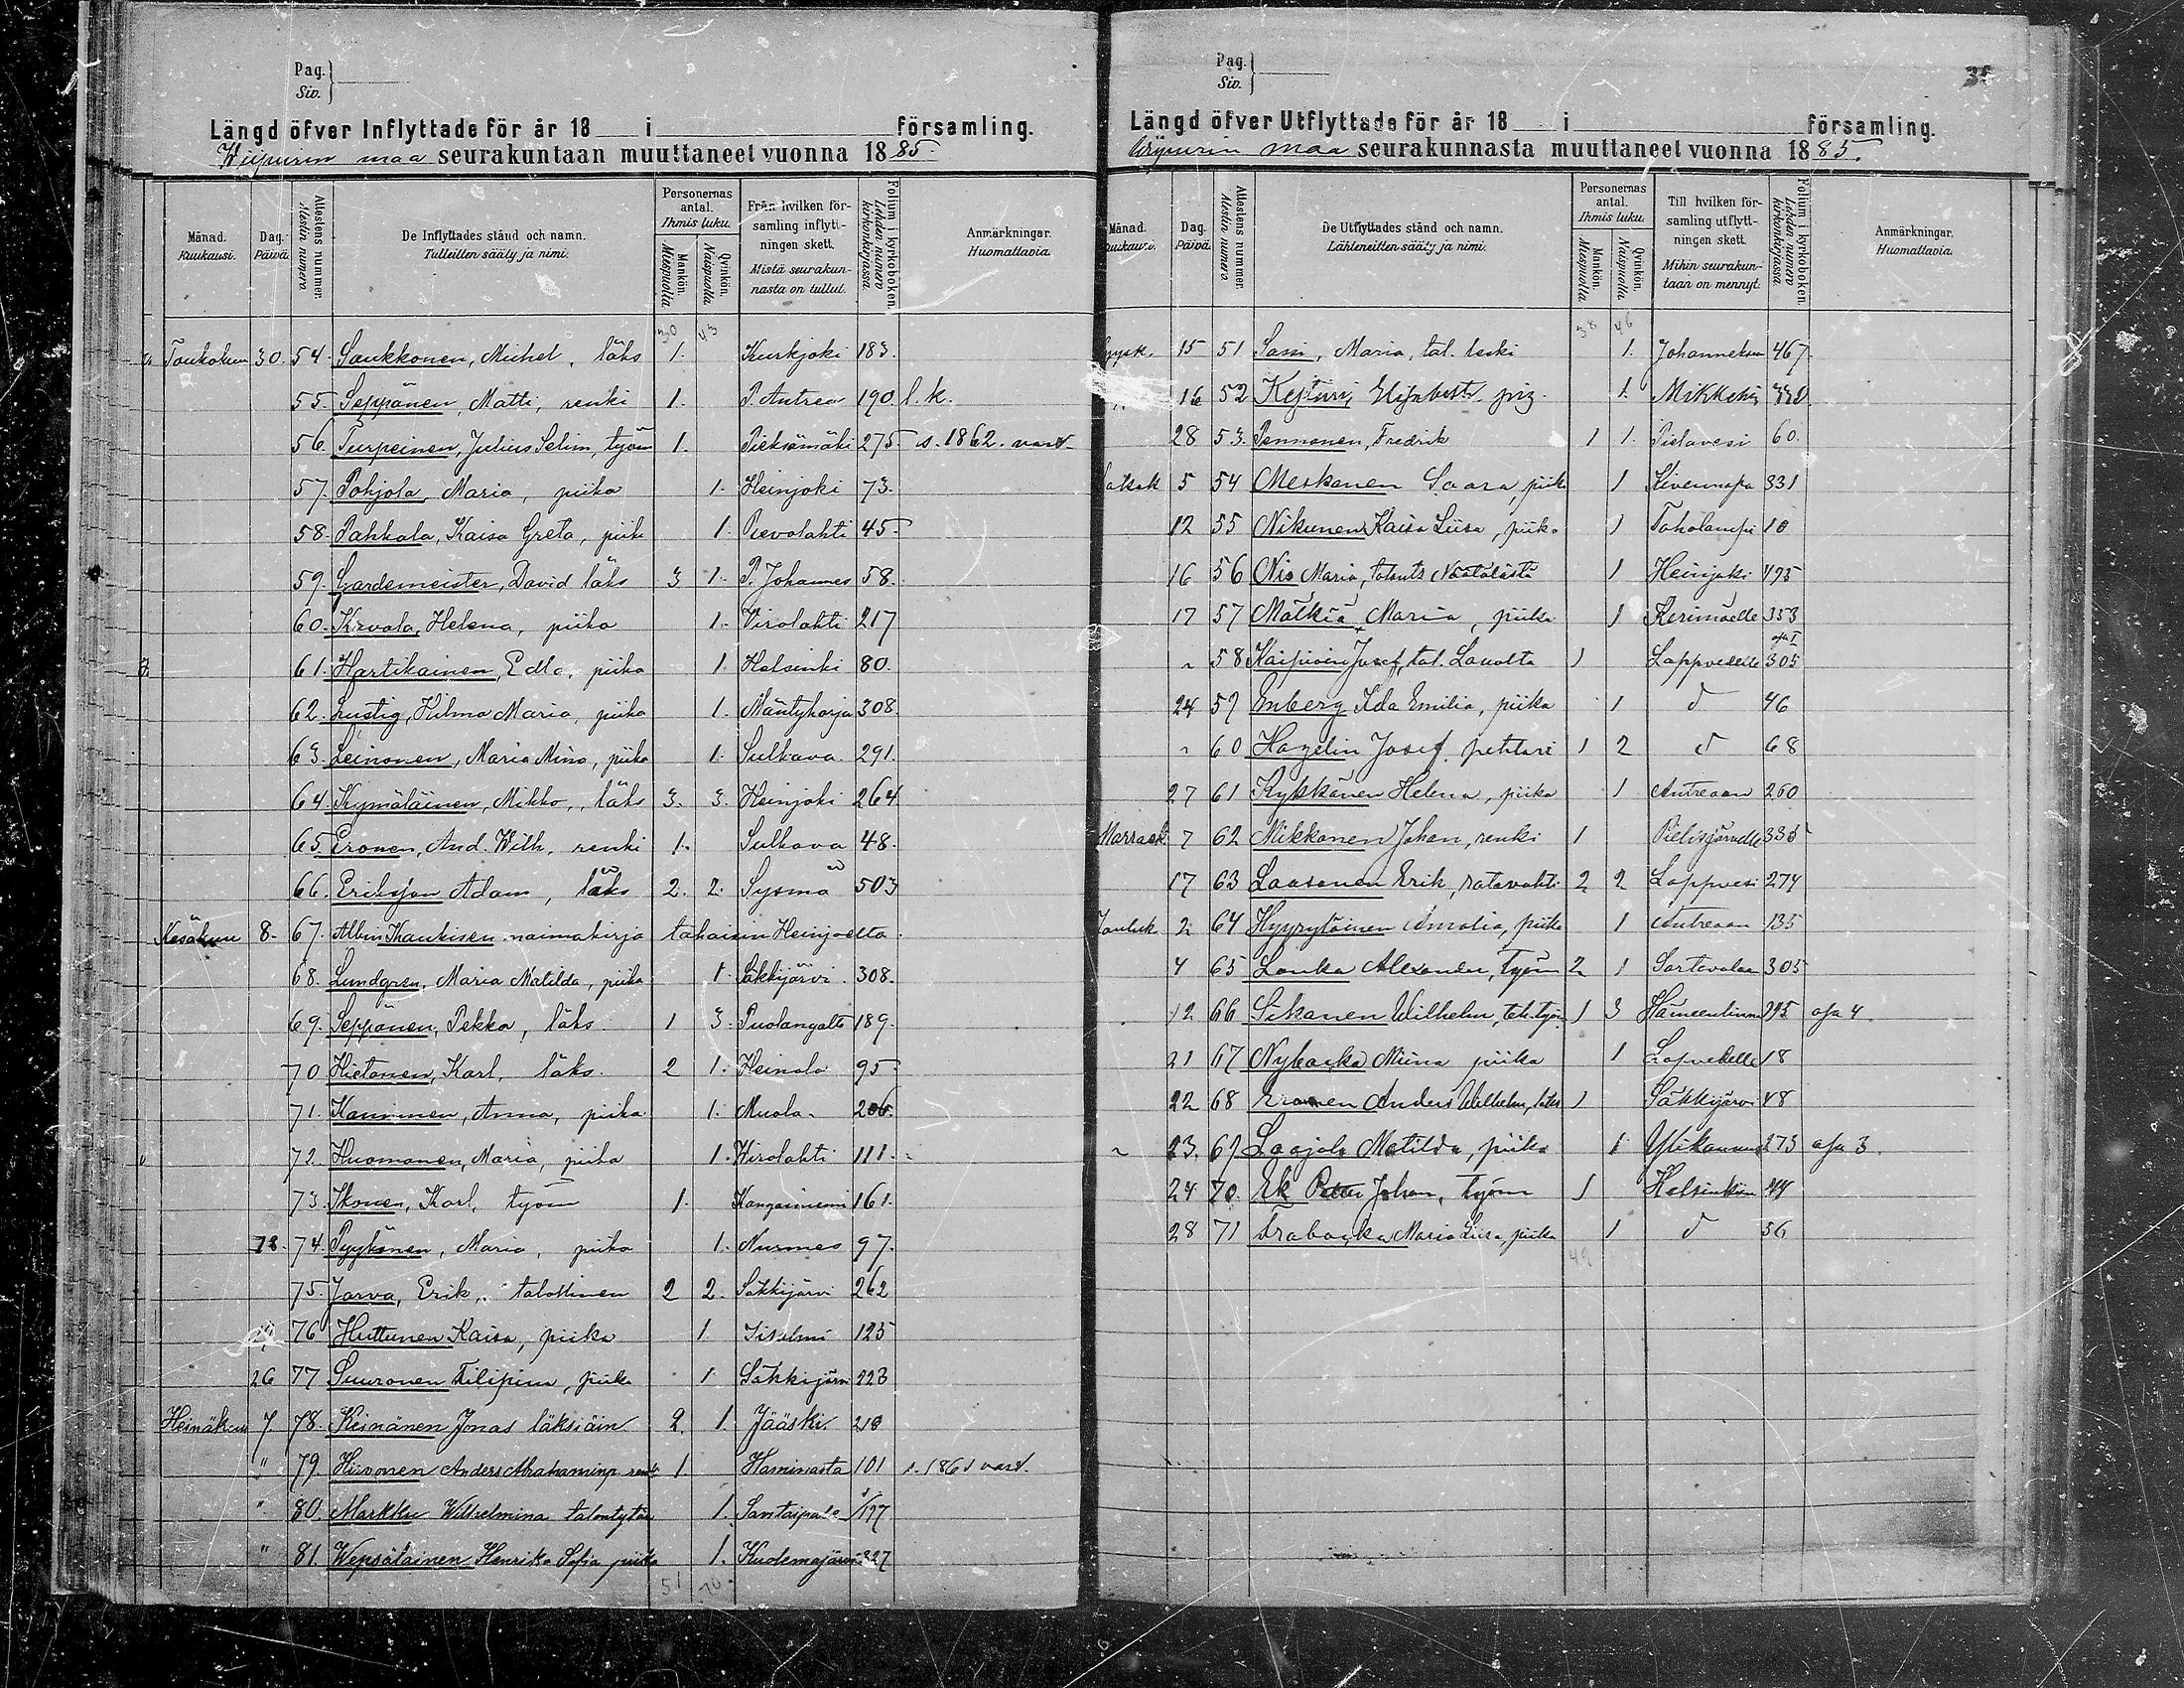 Pag.
Siv.
Längd öfver Inflyttade för år 18 i församling.
Wiipurin maa seurakuntaan muuttaneet vuonna 1885.
Månad. Kuukausi.
Dag. Päivä.
Attestens nummer. Atestin numero
De Inflyttades stånd och namn. Tulleitten sääty ja nimi.
Personernas antal. Ihmis luku.
Mankön. Miespuolia
Qvinkön. Naispuolia
Från hvilken församling inflyttningen skett. Mistä seurakunnasta on tullut.
Folium i kyrkoboken. Lehden numero kirkonkirjassa
Anmärkningar. Huomattavia.
30 43
Toukokuu 30. 54. Saukkonen, Michel, läks 1. Kurkjoki 183.
55. Seppänen, Matti, renki 1. P. Antrea 190. l. k.
56. Turpeinen, Julius Selim, työm 1. Pieksämäki 275 s. 1862. vard.
57. Pohjola, Maria, piika 1. Heinjoki 73.
58. Pahkala, Kaisa Greta, piika 1. Revolahti 45
59. Gardemeister, David läks 3 1. P. Johannes 58.
60. Kirvola, Helena, piika 1. Virolahti 217
61. Hartikainen, Edla, piika 1. Helsinki 80.
62. Lustig, Hilma Maria, piika 1. Mäntyharju 308
63. Leinonen, Maria Mina, piika 1. Sulkava 291.
64. Kymäläinen, Mikko, läks 3. 3. Heinjoki 264
65. Eronen, And. Wilh, renki 1. Sulkava 48.
66. Eriksson Adam, läks 2. 2. Sysmä 503
Kesäkuu 8. 67. Albin Kaukisen naimakirja takaisin Heinjoelta.
68. Lundgren, Maria Matilda, piika 1. Säkkijärvi 308.
69. Seppänen, Pekka, läks 1 3. Puolangalta 189.
70 Hietanen, Karl, läks. 2 1. Heinola 95
71. Kanninen, Anna, piika 1. Muola 206.
72. Huomonen, Maria, piika 1. Wirolahti 111.
73. Ikonen, Karl, työm 1. Kangasniemi 161.
18. 74. Pyykönen, Maria, piika 1. Nurmes 97.
75. Jarva, Erik, talollinen 2 2. Säkkijärvi 262
76 Huttunen Kaisa, piika 1 Iisalmi 125
26 77 Suuronen Filipina, piika 1 Säkkijärvi 223
Heinäkuu 7. 78. Keinänen Jonas läksiäin 2. 1. Jääski 210
" 79. Hirvonen Anders Abrahaminp. renki 1. Haminasta 101 s. 1861 vard.
" 80. Markku Wilhelmina talontytär 1. Savitaipale 177
" 81. Wepsäläinen Henrika Sofia piika 1. Kuolemajärvi 327
51 70
Pag.
Siv.
Längd öfver Utflyttade för år 18 i församling.
Wiipurin maa seurakunnasta muuttaneet vuonna 1885.
Månad. Kuukausi.
Dag. Päivä.
Attestens nummer. Atestin numero
De Utflyttades stånd och namn. Lähteneitten sääty ja nimi.
Personernas antal. Ihmis luku.
Mankön. Miespuolia
Qvinkön. Naispuolia
Till hvilken församling utflyttningen skett. Mihin seurakuntaan on mennyt.
Folium i kyrkoboken. Lehden numero kirkonkirjassa
Anmärkningar. Huomattavia.
38 46
Syysk. 15 51 Sassi, Maria, tal. leski 1. Johanneksen 467
16 52 Elisabeth 1. Mikkeliin
28 53. Pennanen, Fredrik 1 1. Pielavesi 60.
Lokak 5 54 Meskanen Saara, piika 1 Kivennapa 331
12 55 Nikunen Kaisa Liisa, piika 1 Toholampi 10
16 56 Nis Maria, talontr Näätälästä 1 Heinjoki 495
17 57 Mälkiä Maria, piika 1 Kerimäelle 353
" 58 Kaipiain Josef, tal. Lavolta 1 Lappvedelle 305 osa I
24 59 Emberg Ida Emilia, piika 1 d 46
" 60 Hagelin Josef 1 2 d 68
27 61 Kykkänen Helena, piika 1 Antreaan 260
Marrask 7 62 Mikkonen Johan, renki 1 Pielisjärvelle 335
17 63 Laasonen Erik, ratavahti 2 2 Lappvesi 274
Jouluk 2 64 Hyyryläinen Amalia, piika 1 Antreaan 135
4 65 Lonka Alexander, työm 2 1 Sortavalaan 305
12 66 Sikanen Wilhelm, teht. työm 1 3 Hämeenlinna 195 osa 4.
21 67 Nybacka Miina piika 1 Lapvedelle 18
22 68 Eronen Anders Wilhelm, läks 1 Säkkijärvi 48
" 23. 69 Laajola Matilda, piika 1 Ylikannus 273 osa 3.
24 70. Ek Petter Johan, työm 1 Helsinkiin 44
28 71 Drabacka Maria Liisa, piika 1 d 56
49